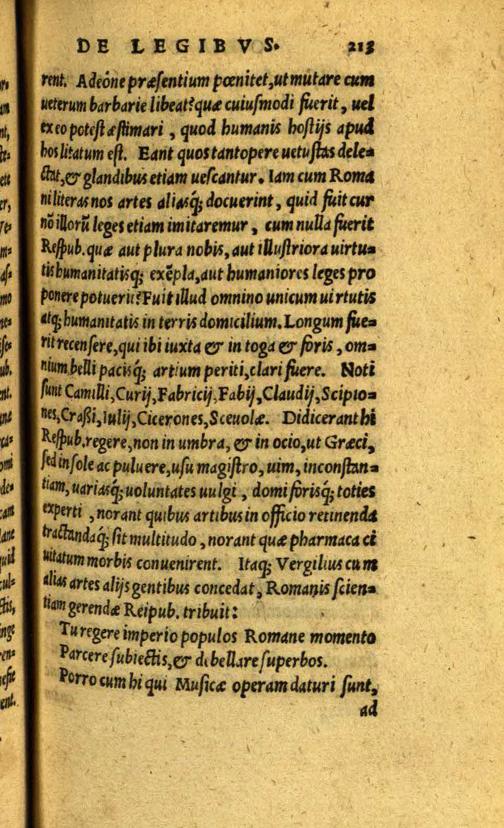 DE LEGIBVS. 213
rent. Adeóne præsentium pœnitet, ut mutare cum
ueterum barbarie libeat? quæ cuiusmodi fuerit, uel
ex eo potest æstimari, quod humanis hostijs apud
hos litatum est. Eant quos tantopere uetustas dele=
ctat, & glandibus etiam uescantur. Iam cum Roma
ni literas nos artes aliasq; docuerint, quid fuit cur
nõ illorũ leges etiam imitaremur, cum nulla fuerit
Respub. quæ aut plura nobis, aut illustriora uirtu=
tis humanitatisq; exẽpla, aut humaniores leges pro
ponere potuerit? Fuit illud omnino unicum uirtutis
atq; humanitatis in terris domicilium. Longum fue=
rit recensere, qui ibi iuxta & in toga & foris, om=
nium belli pacisq; artium periti, clari fuere. Noti
sunt Camilli, Curij, Fabricij, Fabij, Claudij, Scipio=
nes, Craßi, Iulij, Cicerones, Sceuolæ. Didicerant hi
Respub. regere, non in umbra, & in ocio, ut Græci,
sed in sole ac puluere, usu magistro, uim, inconstan=
tiam, uariasq; uoluntates uulgi, domi forisq; toties
experti, norant quibus artibus in officio retinenda
tractandaq; sit multitudo, norant quæ pharmaca ci
uitatum morbis conuenirent. Itaq; Vergilius cum
alias artes alijs gentibus concedat, Romanis scien=
tiam gerendæ Reipub. tribuit:
Tu regere imperio populos Romane momento
Parcere subiectis, & debellare superbos.
Porro cum hi qui Musicæ operam daturi sunt,
ad